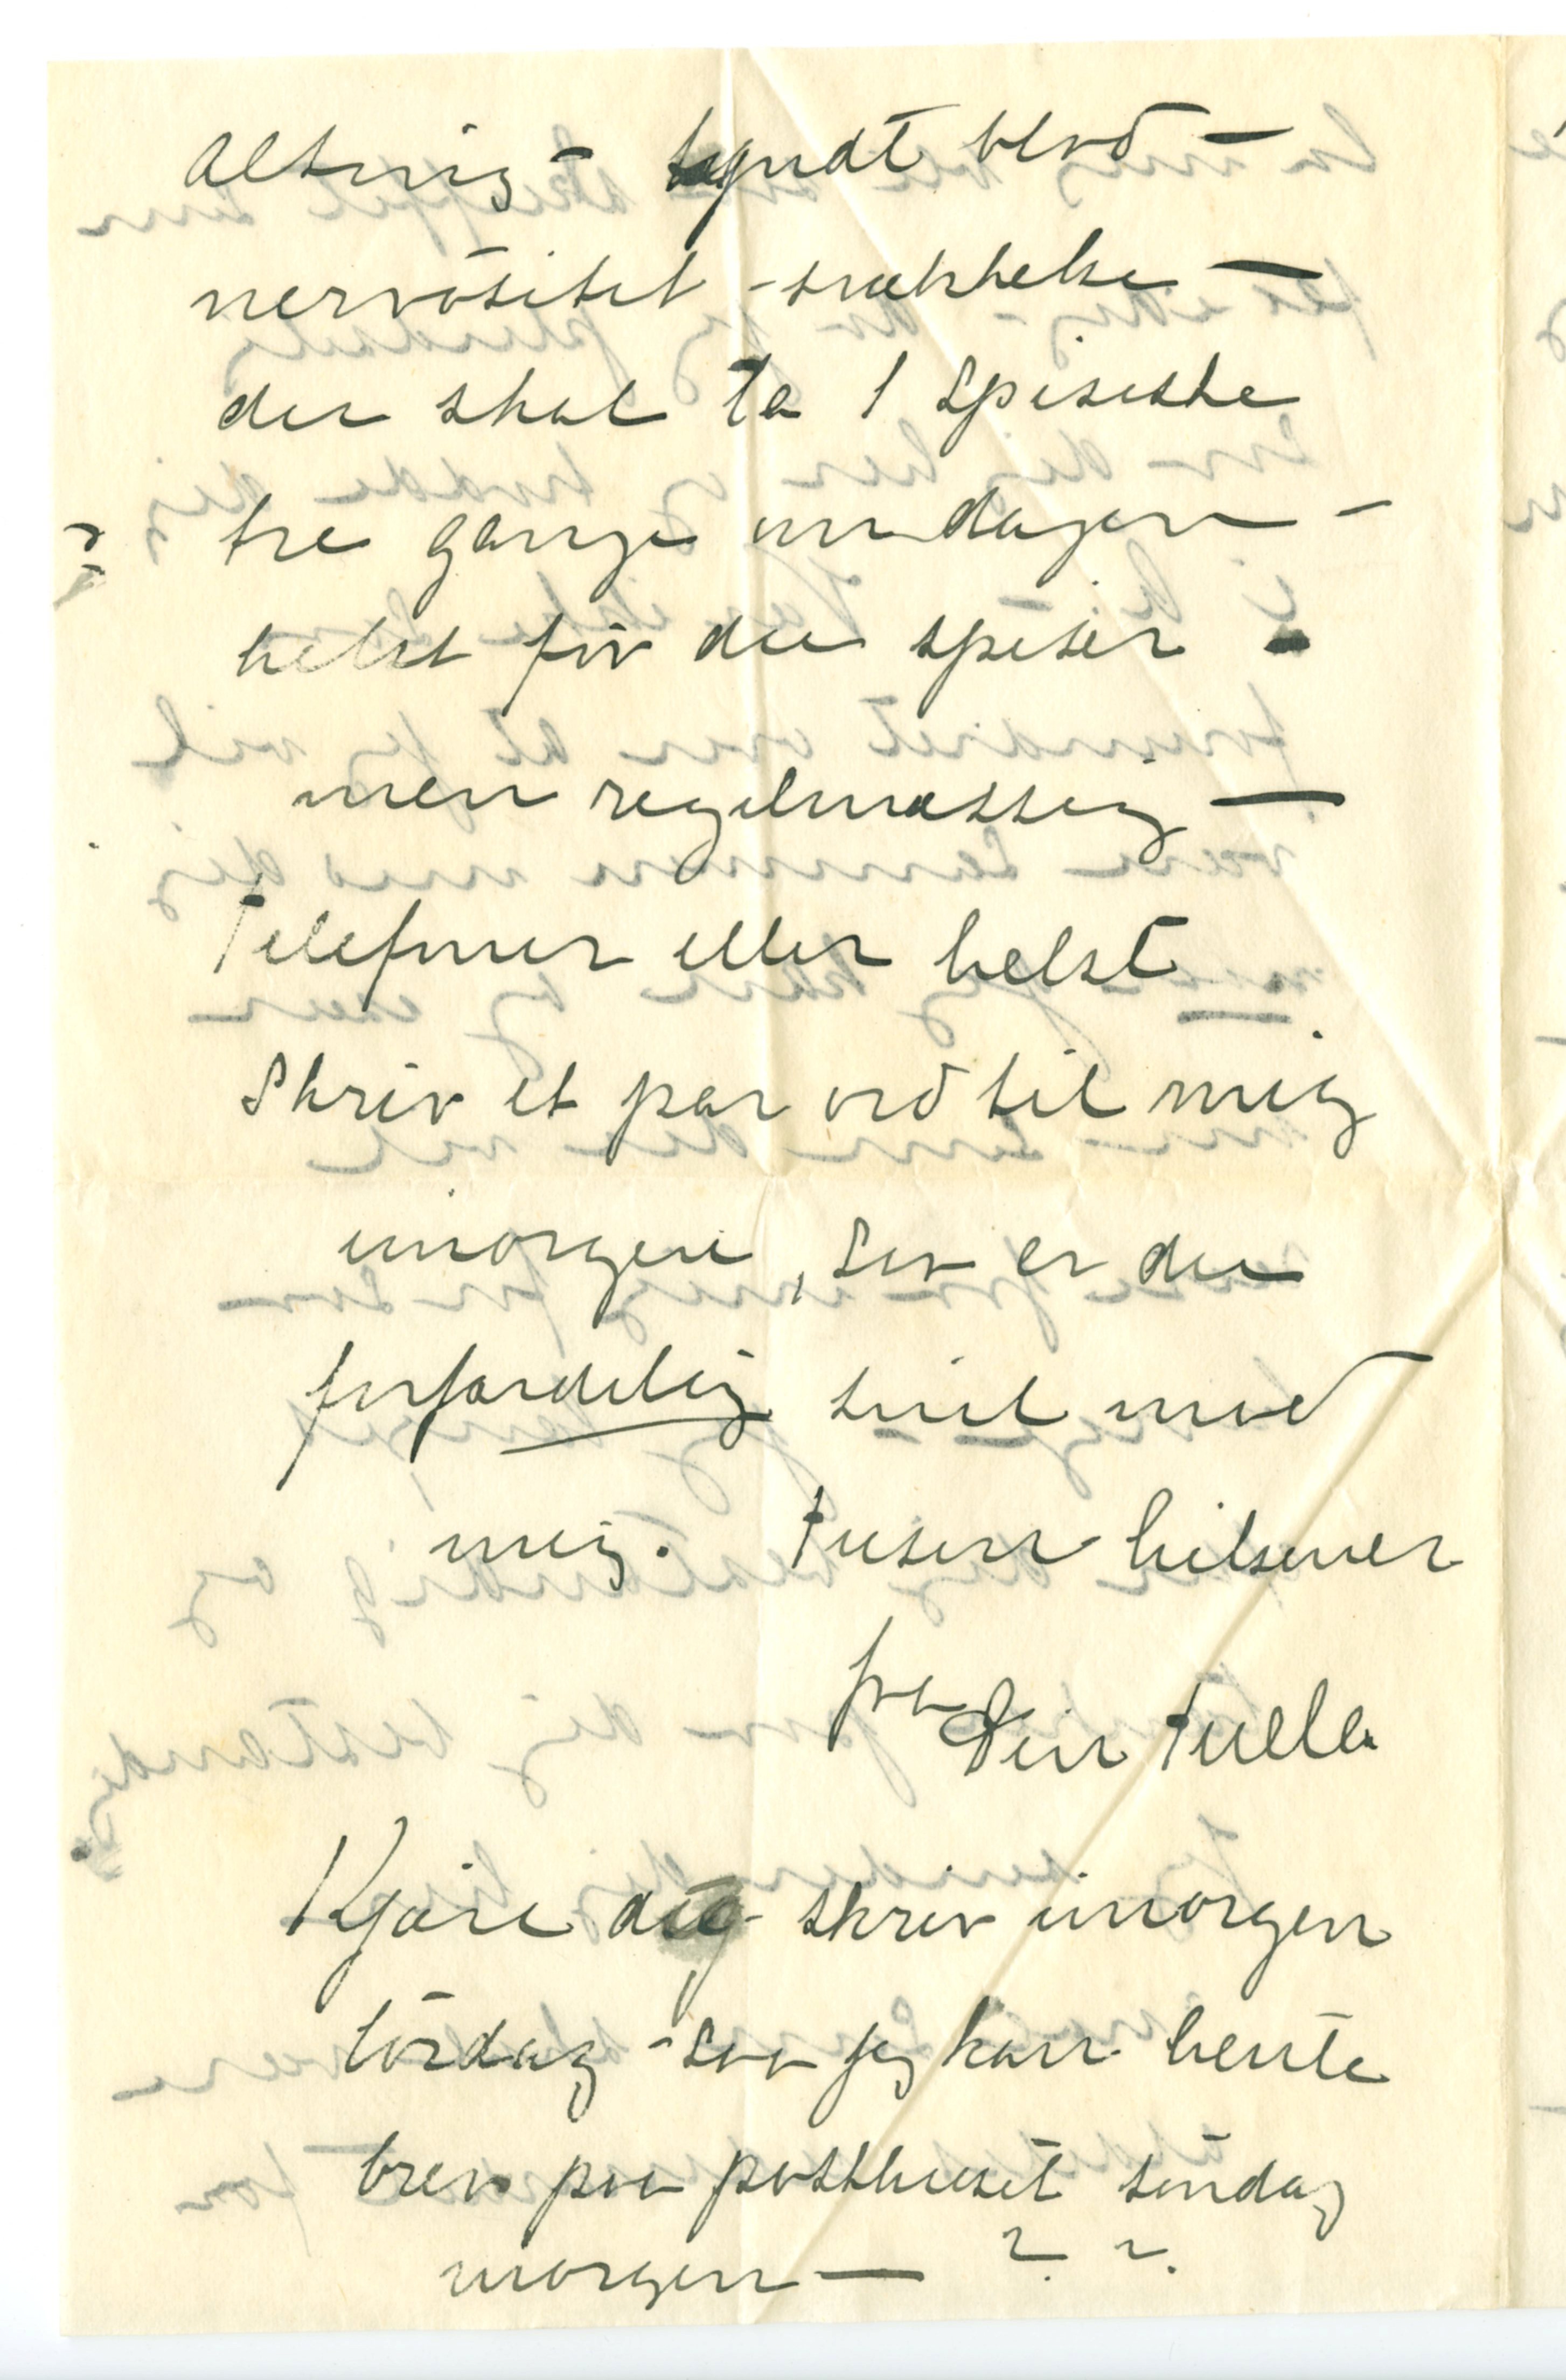 alting – tyndt blod –
nervøsitet – svækkelse –
du skal ta 1 spiseske
tre gange om dagen –
helst før du spiser –
men regelmæssig –
Telefoner eller helst
Skriv et par ord til mig
imorgen, saa er du
forfærdelig snil mod
mig. Tusen hilsener
fra
Din Tulla
Kjære dig – skriv imorgen
lørdag – saa jeg kan hente
brev paa posthuset søndag
morgen — ? ?